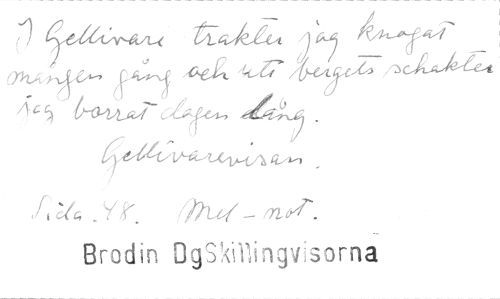 I Gellivare trakter jag knogat
mången gång och uti bergets schakter
jag borrat dagen lång.
Gellivarevisan.
Sida. 48. Mel-not.
Brodin DgSkillingvisorna